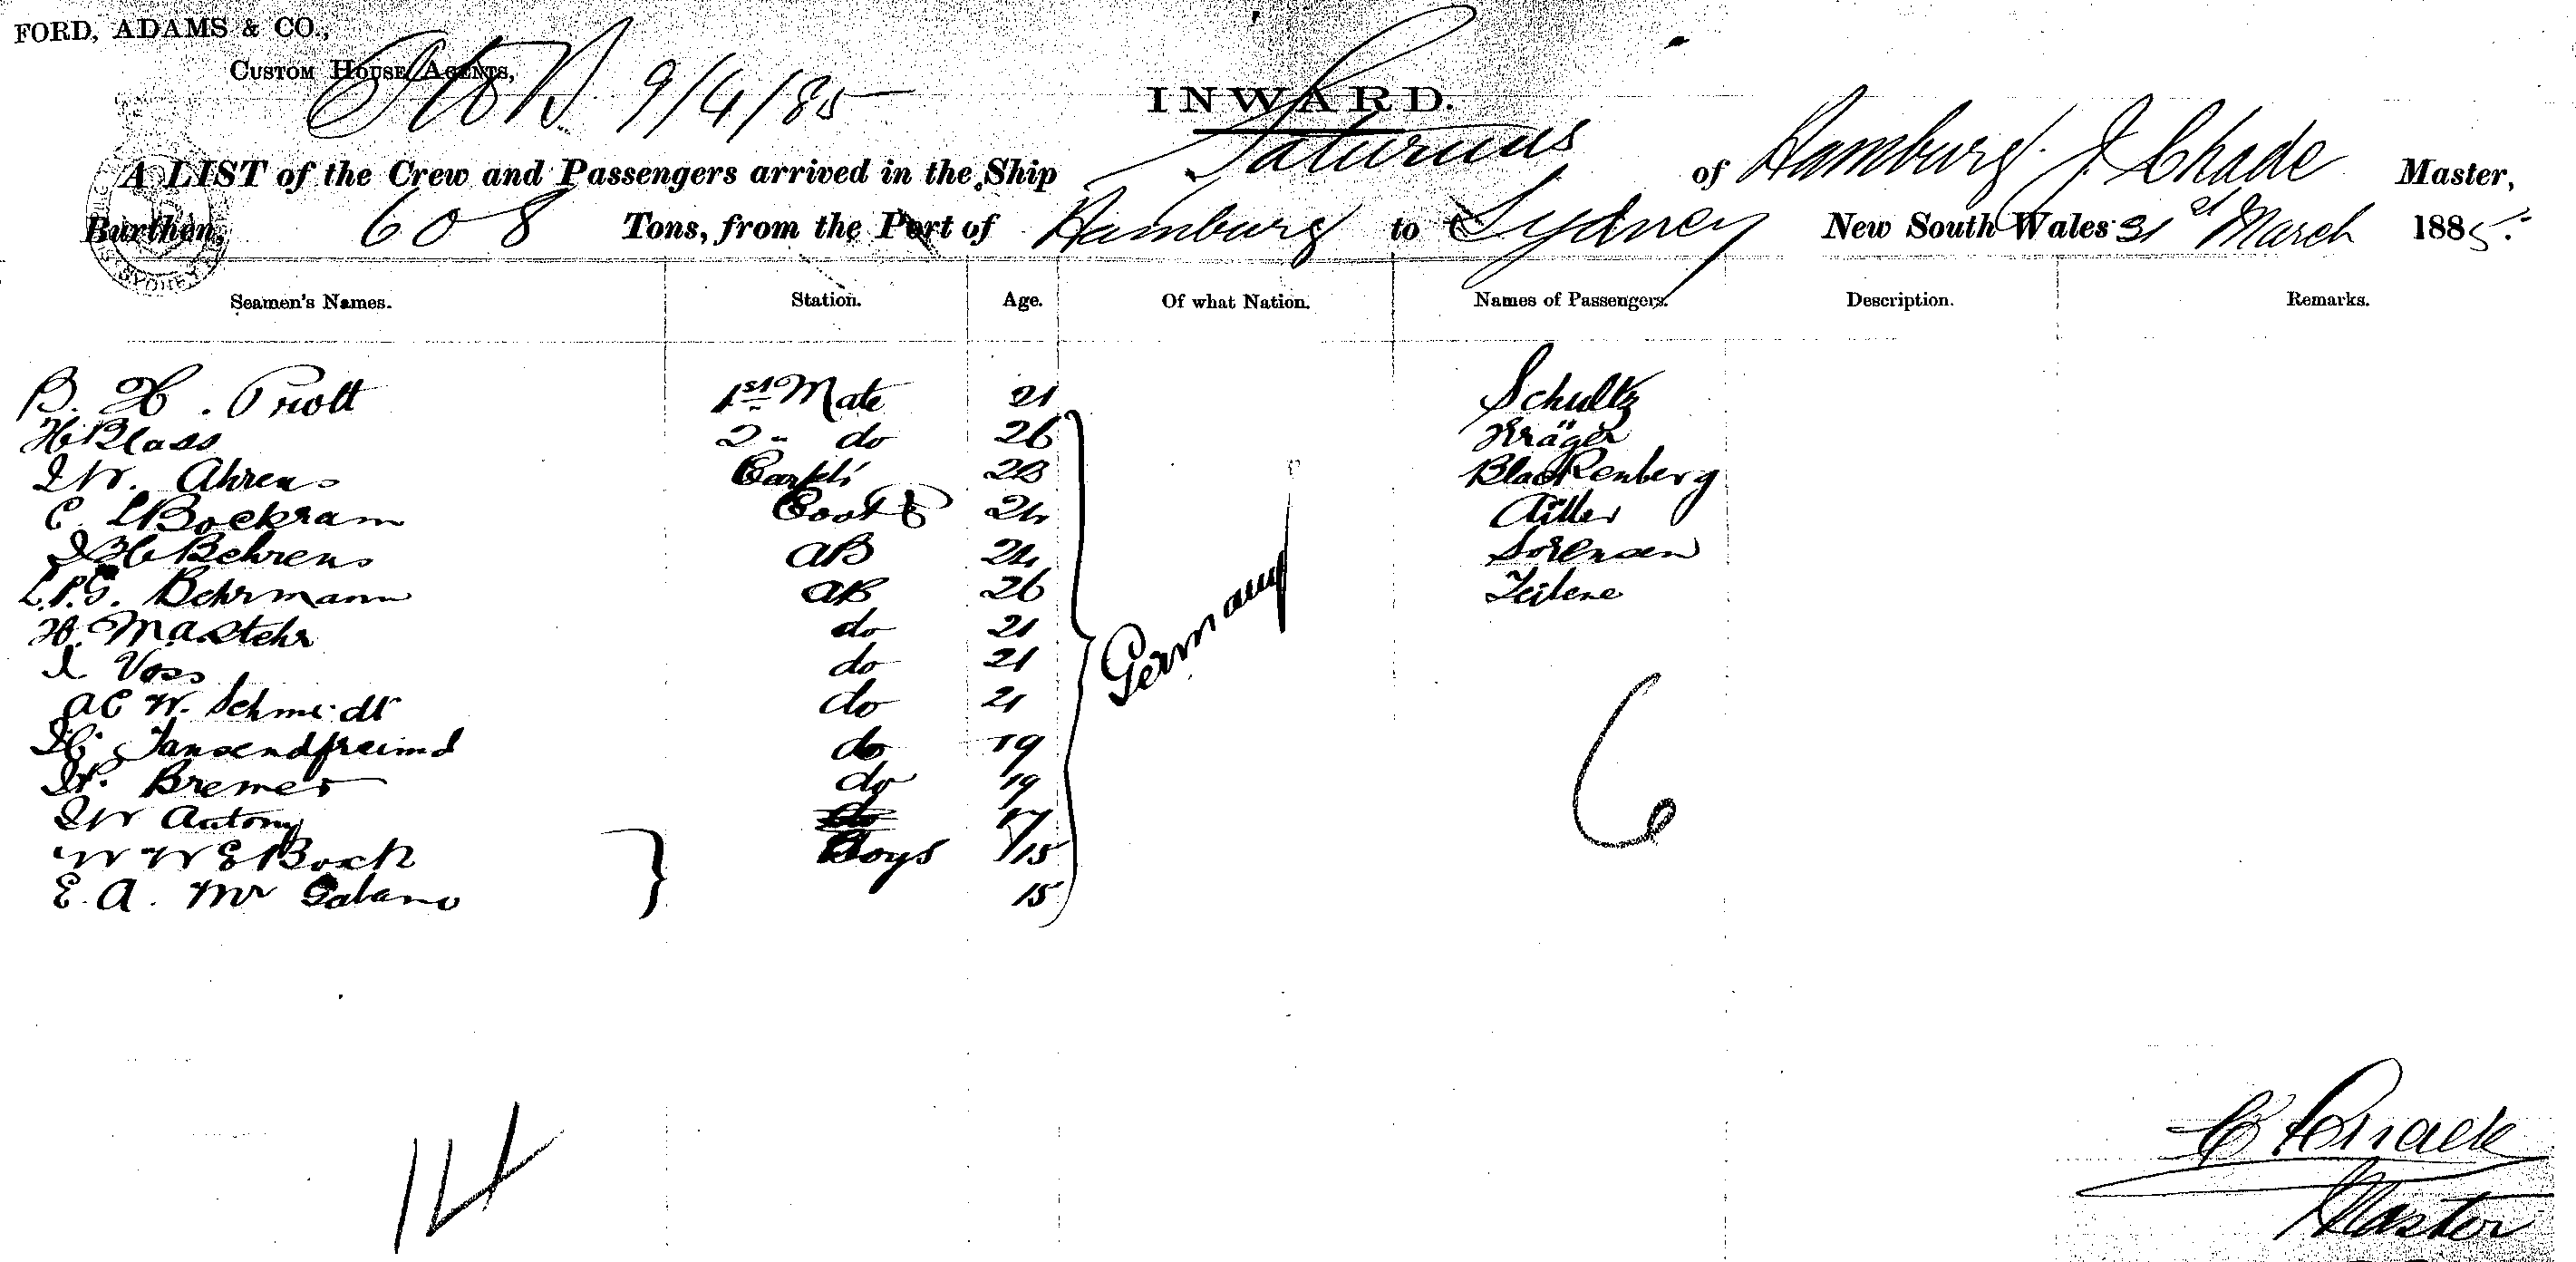 FORD, ADAMS & CO.,
CUSTOM HOUSE AGENTS,
9/4/85
INWARD.
A LIST of the Crew and Passengers arrived in the Ship Saturnus of Hamburg J Schade Master,
Burthen, 608 Tons, from the Port of Hamburg to Sydney New South Wales 31st March 1885.
Seamen's Names. Station. Age. Of what Nation. Names of Passengers. Description. Remarks.
B. H. Priott 1st Mate 21 Schultz
H Blass 2 do 26 Kräger
J W. Ahrens Carptr 28 Blackenberg
C. L Bockram Cook & 24
J H Behrens AB 24 Sorensen
L.P.G. Behrmann AB 26
H. Mastehr do 21
J Voss do 21
Germany
A C W. Schmidt do 21
H. Tausendfreund do 19
H. Bremer do 19
6
J W Antony do 17
W W E Bock Boys 15
E. A. 15
14
Master